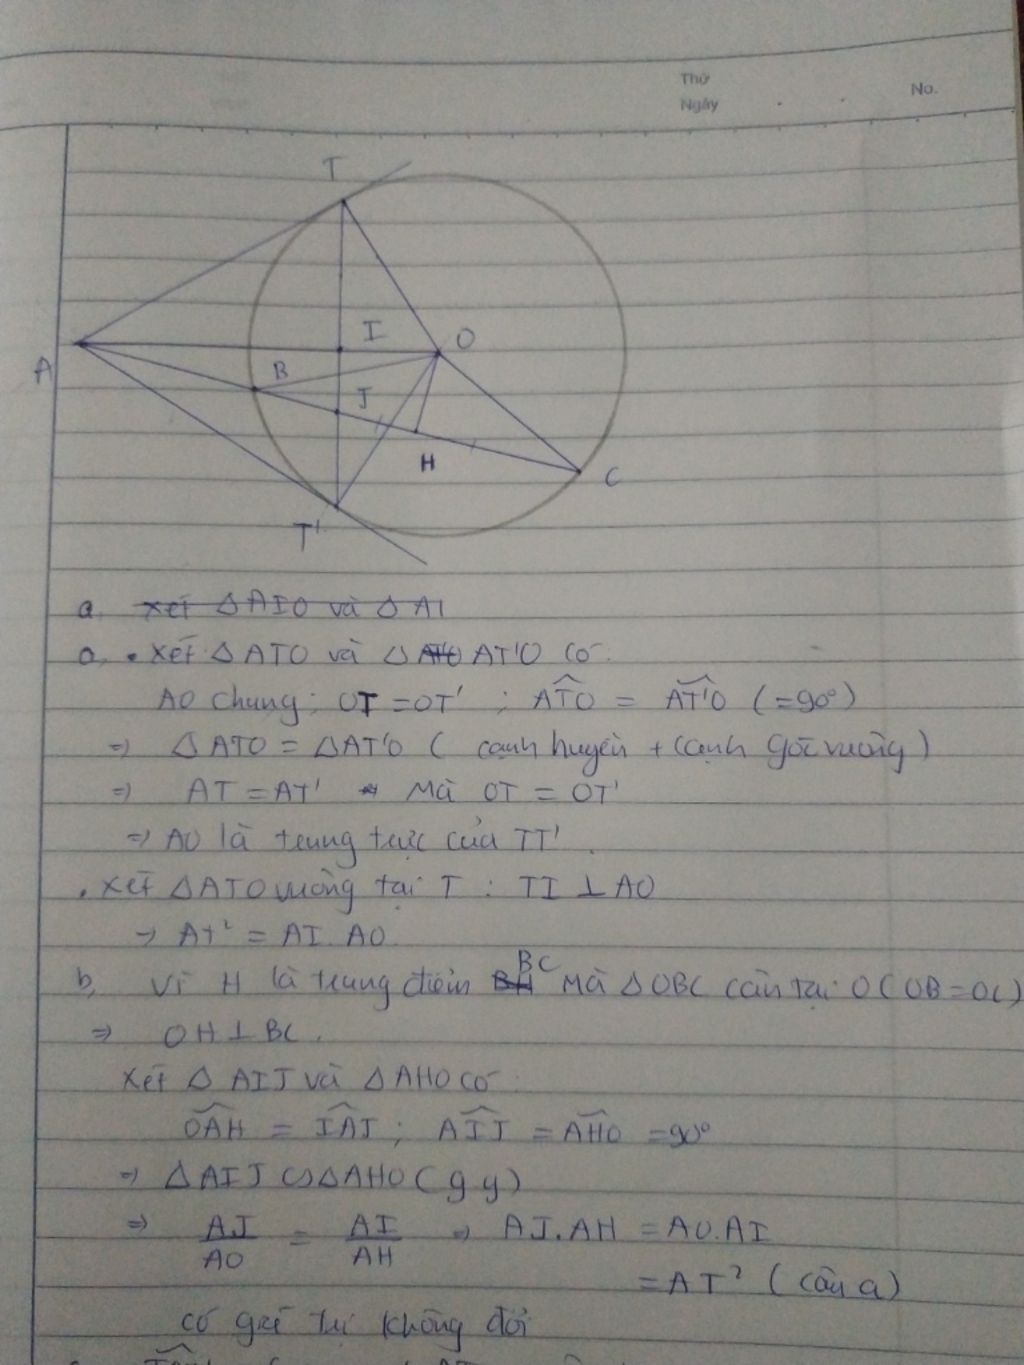 Thứ
Ngày
No.
T
I
O
A
B
J
H
C
T'
a, Xét △AIO và △AI
a, • Xét △ATO và △AHO AT'O có
AO chung; OT = OT' ; ATO = AT'O (=90°)
⇒ △ATO = △AT'O (cạnh huyền + cạnh góc vuông)
⇒ AT = AT' Mà OT = OT'
⇒ AO là trung trực của TT'.
. Xét △ATO vuông tại T : TI ⊥ AO
→ At² = AI. AO
b, Vì H là trung điểm BH BC Mà △OBC cân tại O (OB = OC)
⇒ OH ⊥ BC.
Xét △ AIJ và △AHO có
OAH = IAJ ; AIJ = AHO = 90°
⇒ △AIJ ∽ △AHO (g g)
⇒ AJ/AO = AI/AH ⇒ AJ.AH = AO.AI
= AT² (câu a)
có giá trị không đổi